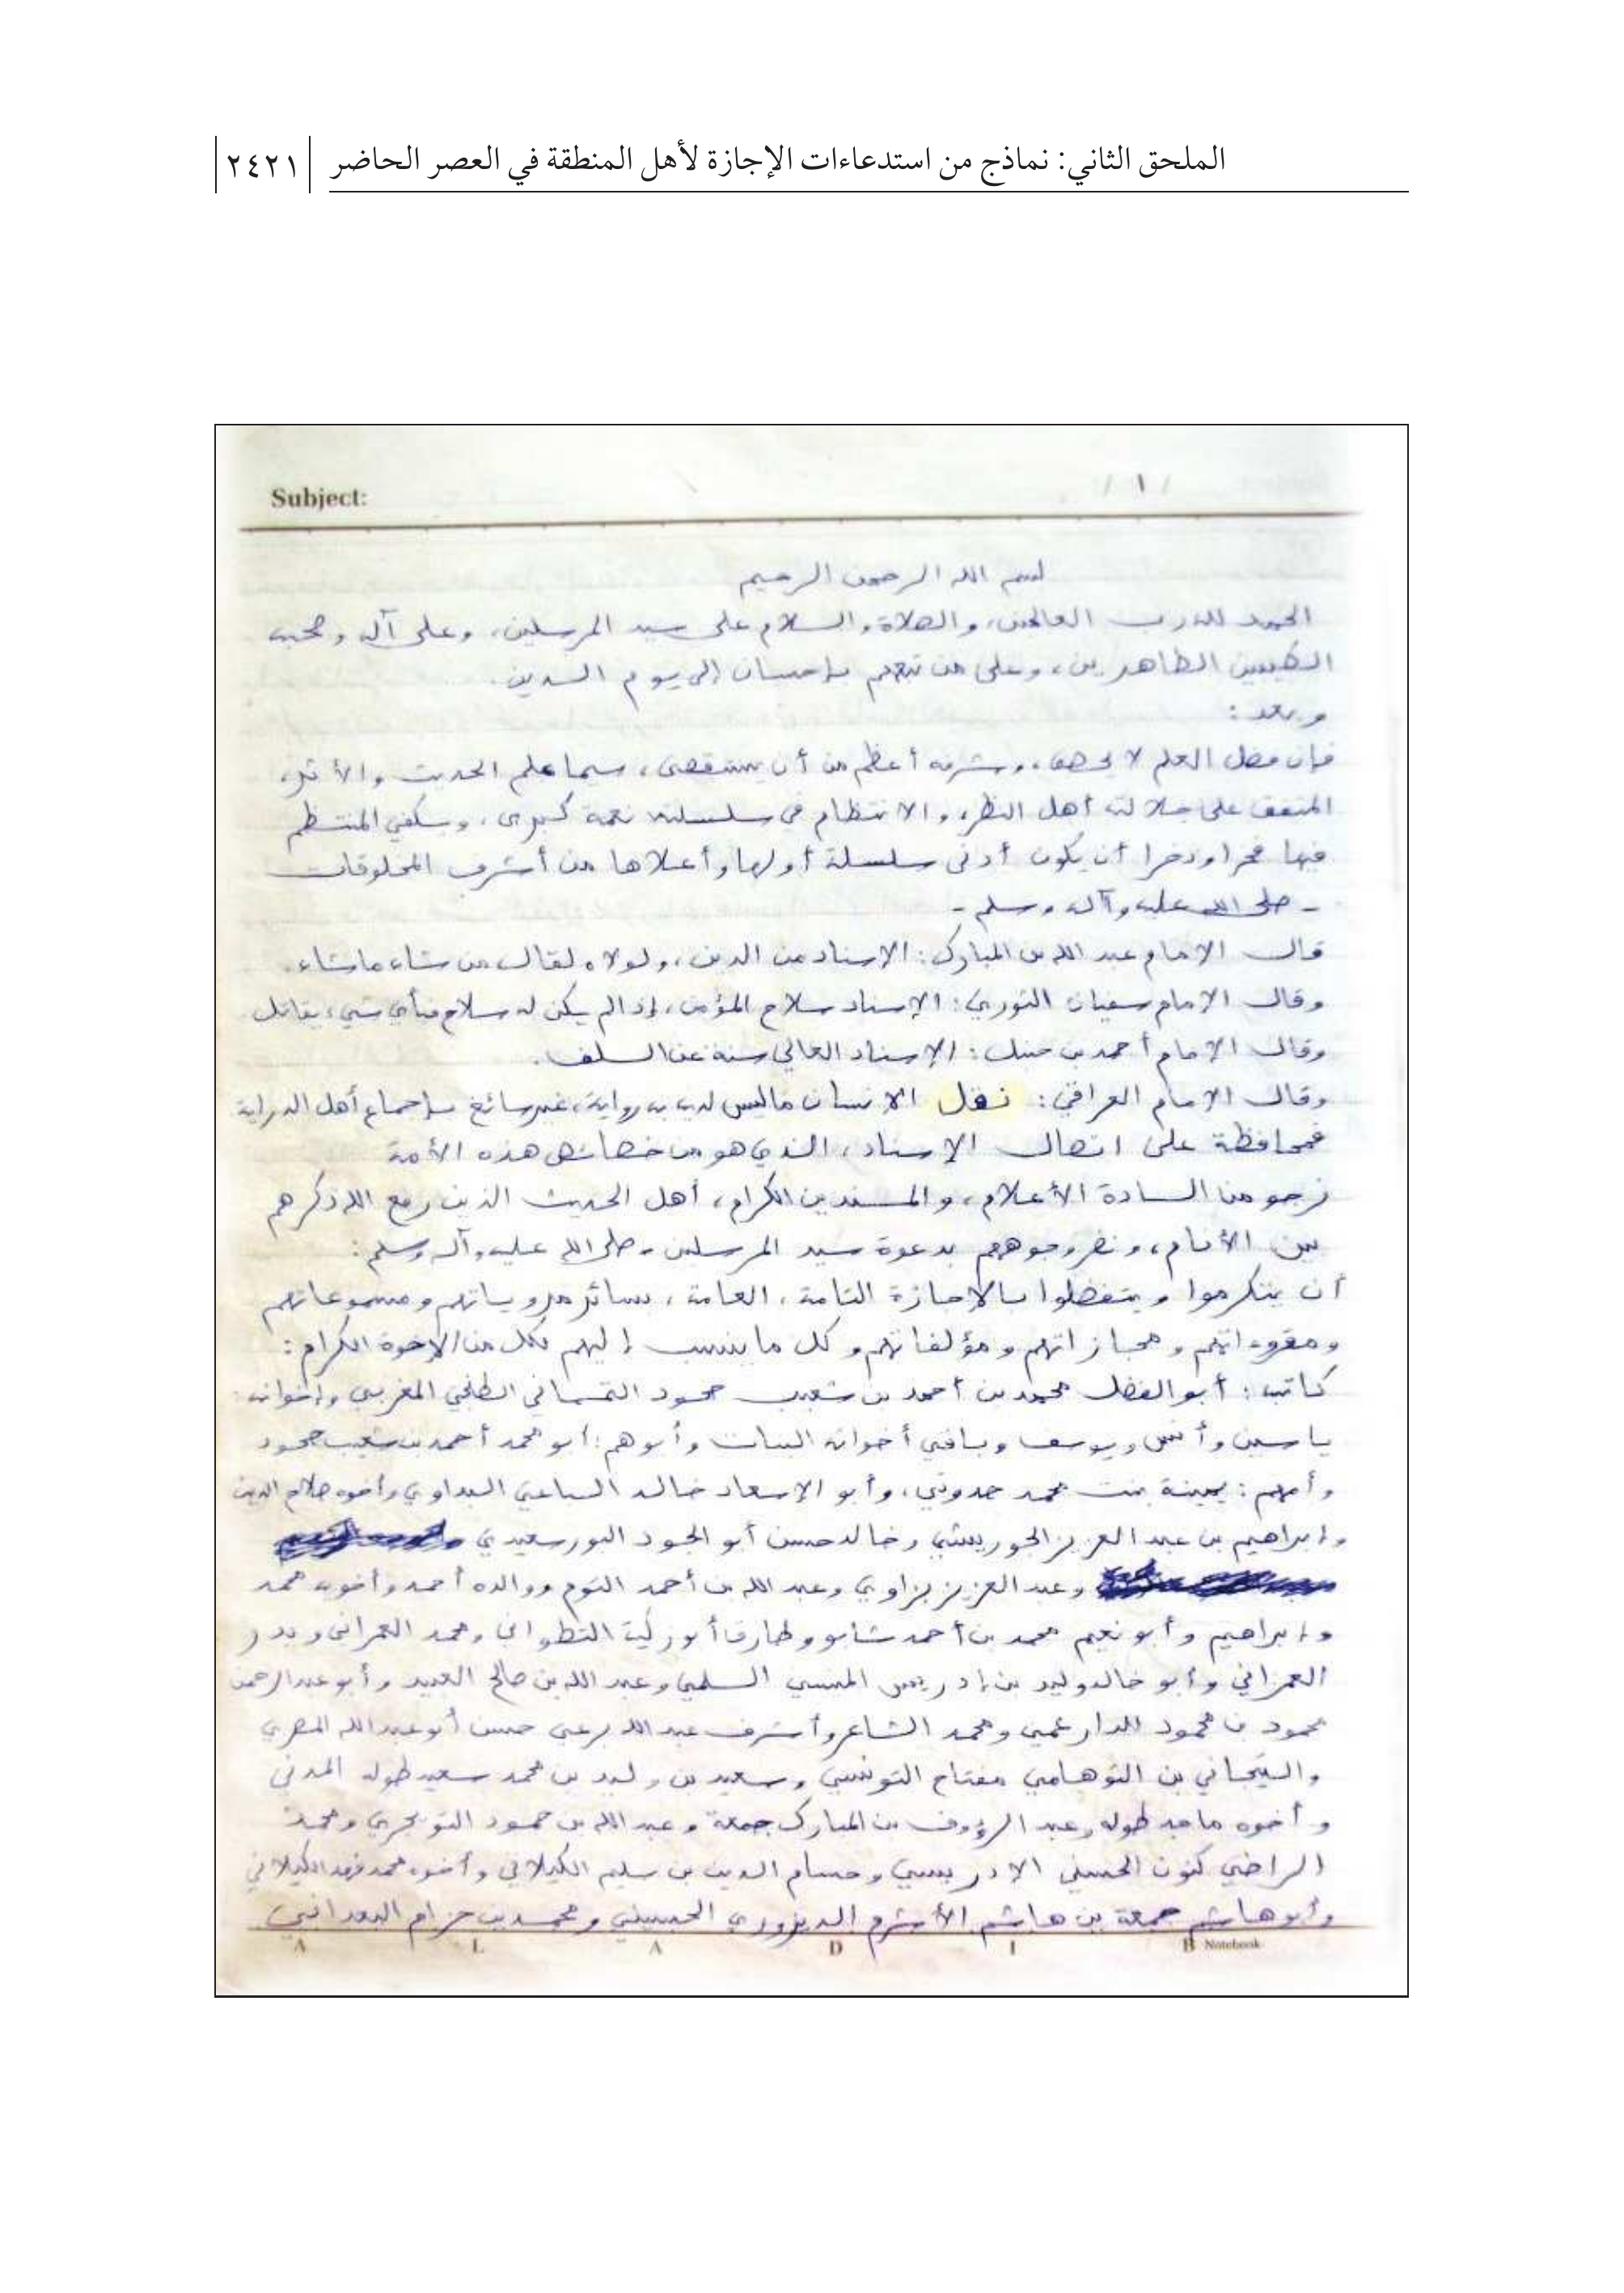 الملحق الثاني: نماذج من استدعاءات الإجازة لأهل المنطقة في العصر الحاضر ٢٤٢١
Subject:
/ ١ /
بسم الله الرحمن الرحيم
الحمد لله رب العالمين، والصلاة والسلام على سيد المرسلين، وعلى آله وصحبه
الطيبين الطاهرين، وعلى من تبعهم بإحسان إلى يوم الدين.
وبعد:
فإن فضل العلم لا يحصى، وشرفه أعظم من أن يستقصى، سيما علم الحديث والأثر،
المتفق على جلالته أهل النظر، والانتظام في سلسلته نعمة كبرى، ويكفي المنتظم
فيها فخرا وذخرا أن يكون أدنى سلسلة أولها وأعلاها من أشرف المخلوقات
- صلى الله عليه وآله وسلم -
قال الإمام عبد الله بن المبارك: الإسناد من الدين، ولولاه لقال من شاء ما شاء.
وقال الإمام سفيان الثوري: الإسناد سلاح المؤمن، إذا لم يكن له سلاح فبأي شيء يقاتل
وقال الإمام أحمد بن حنبل: الإسناد العالي سنة عن السلف.
وقال الإمام العراقي: نقل الإنسان ما ليس لديه به رواية، غير سائغ بإجماع أهل الدراية
فمحافظة على اتصال الإسناد، الذي هو من خصائص هذه الأمة
نرجو من السادة الأعلام، والمسندين الكرام، أهل الحديث الذين رفع الله ذكرهم
بين الأنام، ونضر وجوههم بدعوة سيد المرسلين - صلى الله عليه وآله وسلم:
أن يتكرموا ويتفضلوا بالإجازة التامة، العامة، بسائر مروياتهم ومسموعاتهم
ومقروءاتهم ومجازاتهم ومؤلفاتهم وكل ما ينسب إليهم لكل من الإخوة الكرام:
كاتبه: أبو الفضل محمد بن أحمد بن شعيب محمود التمسماني الطنجي المغربي وإخوانه:
ياسين وأنس ويوسف وباقي أخواته البنات وأبوهم: أبو محمد أحمد بن شعيب محمود
وأمهم: يمينة بنت محمد حدوتي، وأبو الإسعاد خالد السباعي البيداوي وأخوه صلاح الدين
وإبراهيم بن عبد العزيز الجوريشي وخالد حسن أبو الجود البورسعيدي
وعبد العزيز بزاوي وعبد الله بن أحمد التوم ووالده أحمد وأخوه محمد
وإبراهيم وأبو نعيم محمد بن أحمد شابو وطارق أبوزكية التطواني ومحمد العمراني وبدر
العمراني وأبو خالد وليد بن إدريس المنيسي السلمي وعبد الله بن صالح العبيد وأبو عبد الرحمن
محمود بن محمود الدارعمي ومحمد الشاعر وأشرف عبد الله برعي حسن أبو عبد الله المصري
والتيجاني بن التوهامي مفتاح التونسي وسعيد بن وليد بن محمد سعيد طوله المدني
وأخوه ماجد طوله وعبد الرؤوف بن المبارك جمعة وعبد الله بن حمود التويجري ومحمد
الراضي كنون الحسني الإدريسي وحسام الدين بن سليم الكيلاني وأخوه محمد فرقد الكيلاني
وأبو هاشم جمعة بن هاشم الأشرم الديرزوري الحسيني ومحمد بن حزام البعداني
A L A D I B Notebook